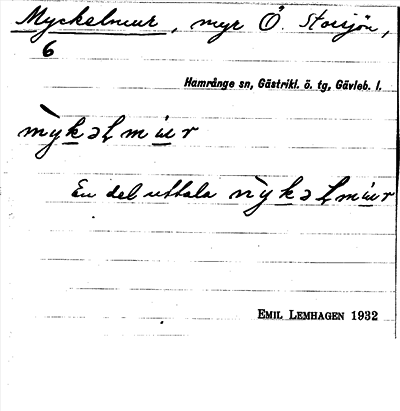 Myckelmur, myr Ö. Storsjön,
6
Hamrånge sn, Gästrikl. ö. tg, Gävleb. l.
mỳkəɫmur
En del uttala nỳkəɫmur
EMIL LEMHAGEN 1932